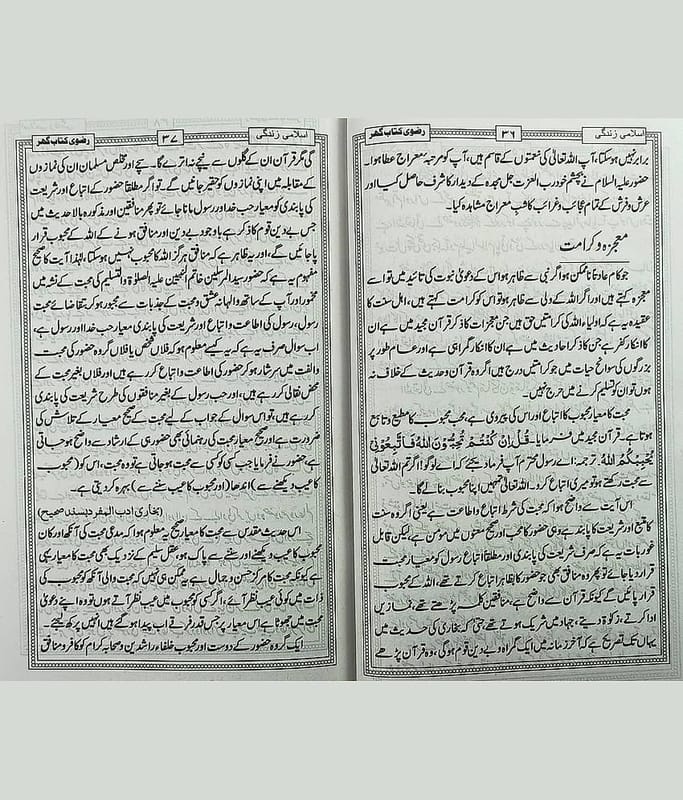 اسلامی زندگی
۳۶
رضوی کتاب گھر
برابر نہیں ہوسکتا، آپ اللہ تعالیٰ کی نعمتوں کے قاسم ہیں، آپ کو مرتبہ معراج عطا ہوا۔
حضور علیہ السلام نے بچشم خود رب العزت جل مجدہ کے دیدار کا شرف حاصل کیا اور
عرش و فرش کے تمام عجائب و غرائب کا شب معراج مشاہدہ کیا۔
معجزہ و کرامت
جو کام عادتاً ناممکن ہو اگر نبی سے ظاہر ہو اس کے دعویٰ نبوت کی تائید میں تو اسے
معجزہ کہتے ہیں اور اگر اللہ کے ولی سے ظاہر ہو تو اس کو کرامت کہتے ہیں، اہل سنت کا
عقیدہ یہ ہے کہ اولیاء اللہ کی کرامتیں حق ہیں جن معجزات کا ذکر قرآن مجید میں ہے ان
کا انکار کفر ہے جن کا ذکر احادیث میں ہے ان کا انکار گمراہی ہے اور عام طور پر
بزرگوں کی سوانح حیات میں جو کرامتیں درج ہیں اگر وہ قرآن و حدیث کے خلاف نہ
ہوں تو ان کو تسلیم کرنے میں حرج نہیں۔
محبت کا معیار محبوب کا اتباع اور اس کی پیروی ہے، محب محبوب کا مطیع و تابع
ہوتا ہے۔ قرآن مجید میں فرمایا۔ قُلْ اِنْ كُنْتُمْ تُحِبُّوْنَ اللّٰهَ فَاتَّبِعُوْنِیْ
یُحْبِبْكُمُ اللّٰهُ۔ ترجمہ: اے رسول محترم آپ فرما دیجئے کہ اے لوگو! اگر تم اللہ تعالیٰ
سے محبت رکھتے ہو تو میری اتباع کرو۔ اللہ تعالیٰ تمہیں اپنا محبوب بنا لے گا۔
اس آیت سے واضح ہوا کہ محبت کی شرط اتباع و اطاعت ہے یعنی اگر وہ سنت
کا متبع اور شریعت کا پابند ہے وہی حضور کا محب اور صحیح معنوں میں مومن ہے لیکن قابل
غور بات یہ ہے کہ صرف شریعت کی پابندی اور مطلقاً اتباع رسول کو معیار محبت
قرار دیا جائے تو پھر وہ منافق بھی جو حضور کا بظاہر اتباع کرتے تھے، اللہ کے محبوب
قرار پائیں گے کیونکہ قرآن سے واضح ہے، منافقین کلمہ پڑھتے تھے، نمازیں
ادا کرتے، زکوٰۃ دیتے، جہاد میں شریک ہوتے تھے حتیٰ کہ بخاری کی حدیث میں
یہاں تک تصریح ہے کہ آخر زمانہ میں ایک گمراہ و بے دین قوم ہوگی، وہ قرآن پڑھے
اسلامی زندگی
۳۷
رضوی کتاب گھر
گی مگر قرآن ان کے گلوں سے نیچے نہ اترے گا۔ سچے اور مخلص مسلمان ان کی نمازوں
کے مقابلہ میں اپنی نمازوں کو حقیر جانیں گے۔ تو اگر مطلقاً حضور کے اتباع اور شریعت
کی پابندی کو معیار حب خدا اور رسول مانا جائے تو پھر منافقین اور مذکورہ بالا حدیث میں
جس بے دین قوم کا ذکر ہے باوجود بے دین اور منافق ہونے کے اللہ کے محبوب قرار
پا جائیں گے، اور یہ ظاہر ہے کہ منافق ہرگز اللہ کا محبوب نہیں ہوسکتا لہٰذا آیت کا صحیح
مفہوم یہ ہے کہ حضور سید المرسلین خاتم النبیین علیہ الصلوٰۃ والتسلیم کی محبت کے نشہ میں
مخمور اور آپ کے ساتھ والہانہ عشق و محبت کے جذبات سے مجبور ہو کر بتقاضائے محبت
رسول، رسول کی اطاعت و اتباع اور شریعت کی پابندی معیار حب خدا اور رسول ہے،
اب سوال صرف یہ ہے کہ یہ کیسے معلوم ہو کہ فلاں شخص یا فلاں گروہ حضور کی محبت
و الفت میں سرشار ہو کر حضور کی اطاعت و اتباع کر رہے ہیں اور فلاں بغیر محبت کے
محض نقالی کر رہے ہیں، اور حب رسول کے بغیر منافقوں کی طرح شریعت کی پابندی
کر رہے ہیں، تو اس سوال کے جواب کے لیے محبت کے صحیح معیار کے تلاش کی
ضرورت ہے اور صحیح معیار محبت کی رہنمائی بھی حضور ہی کے ارشاد سے واضح ہو جاتی
ہے حضور نے فرمایا جب کسی کو کسی سے محبت ہو جاتی ہے تو وہ محبت، اس کو (محبوب
کا عیب دیکھنے سے) اندھا (اور محبوب کا عیب سننے سے) بہرہ کر دیتی ہے۔
(بخاری ادب المفرد بسند صحیح)
اس حدیث مقدس سے محبت کا معیار صحیح یہ معلوم ہوا کہ مدعی محبت کی آنکھ اور کان
محبوب کا عیب دیکھنے اور سننے سے پاک ہو، عقل سلیم کے نزدیک بھی محبت کا معیار یہی
ہے کیونکہ محبت کا مرکز حسن و جمال ہے یہ ممکن ہی نہیں کہ محبت والی آنکھ کو محبوب کی
ذات میں کوئی عیب نظر آئے، اگر کسی کو محبوب میں عیب نظر آتے ہوں تو وہ اپنے دعویٰ
محبت میں جھوٹا ہے اس معیار پر جس قدر فرقے اب پیدا ہو گئے ہیں انہیں پرکھ لیجئے۔
ایک گروہ حضور کے دوست اور محبوب خلفاء راشدین و صحابہ کرام کو کافر و منافق